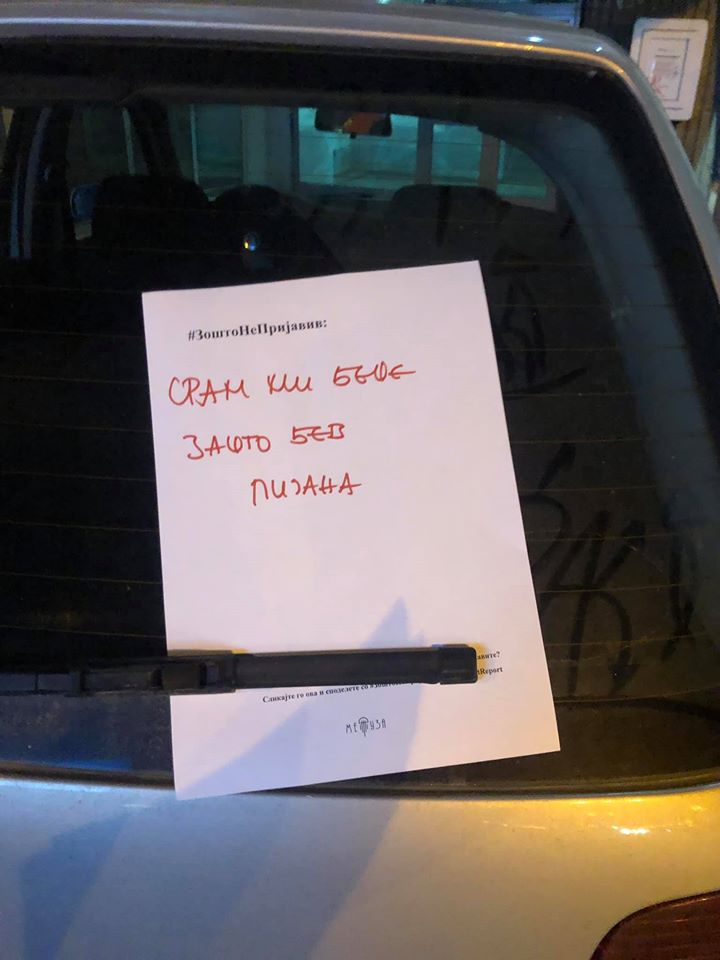 #ЗоштоНеПријавив:
СРАМ МИ БЕШЕ
ЗАШТО БЕВ
ПИЈАНА
Сликајте го ова и споделете со
МЕДУЗА